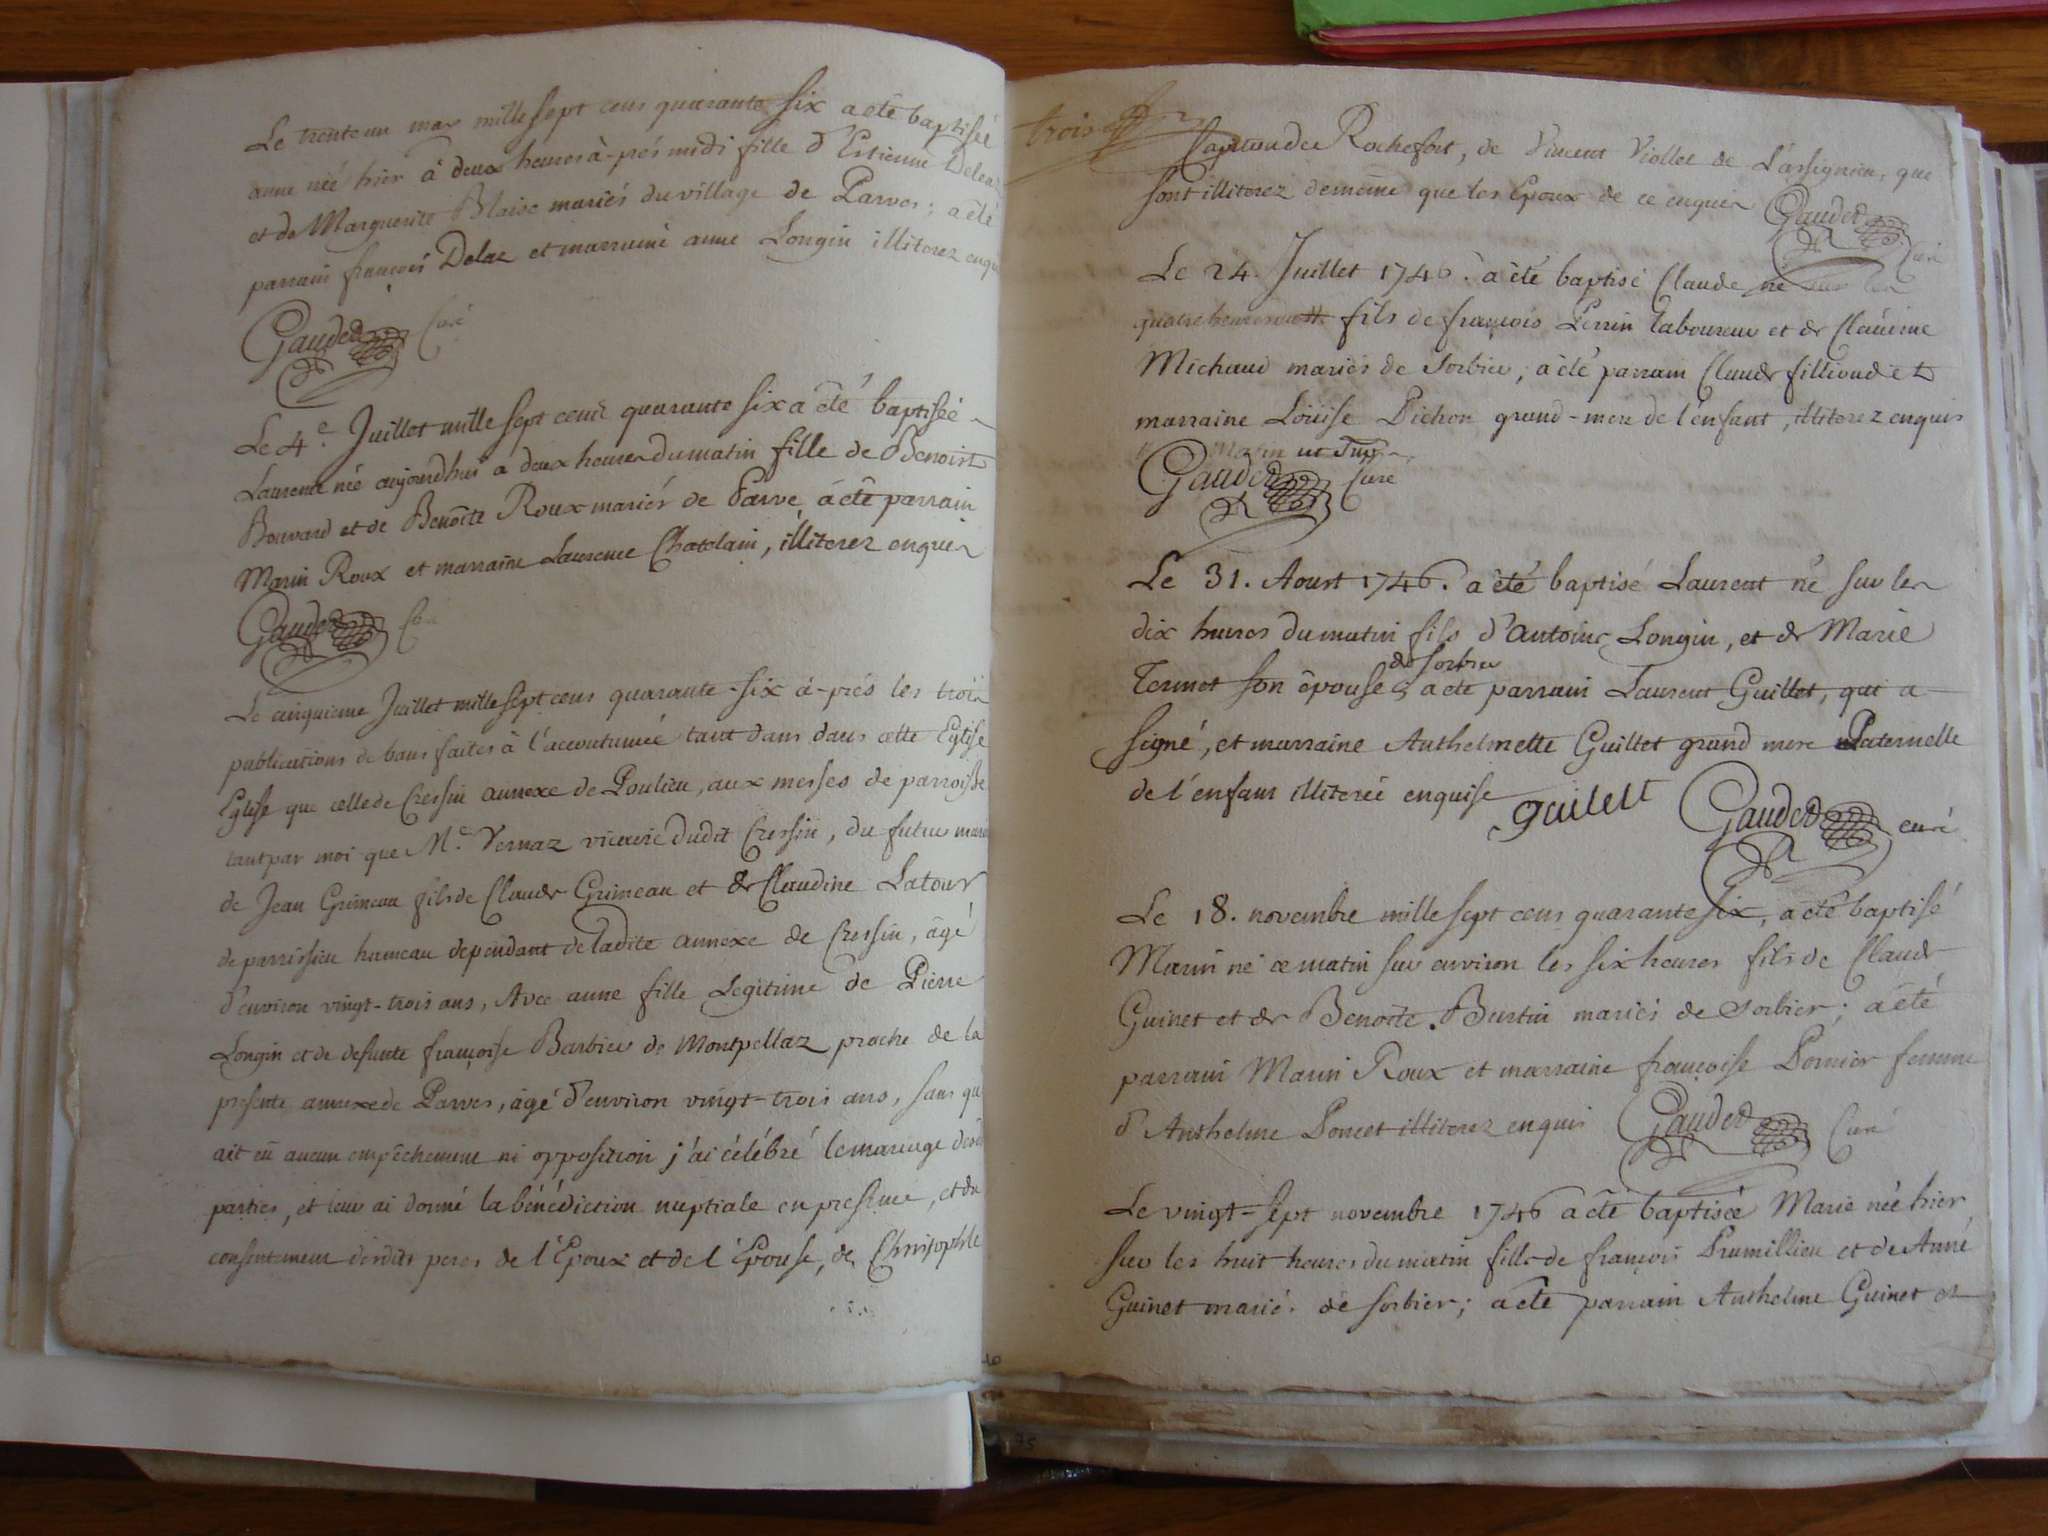 Le trente un may mille sept cens quarante six a eté baptiseé
anne neé hier à deux heures à-prés midi fille d'Estienne Delaz
et de Marguerite Blaise mariés du village de Parves; a êté
parrain françois Delaz et marraine anne Longin illiterez enquis
Gaudet Curé
Le 4e. Juillet mille sept cens quarante six a êté baptiseé
Laurence neé aujourdhui à deux heures du matin fille de Benoist
Bouvard et de Benoîte Roux mariés de Parve, a eté parrain
Marin Roux et marraine Laurence Chatelain, illiterez enquis
Gaudet Curé
Le cinquieme Juillet mille sept cens quarante-six à-prés les trois
publications de bans faites à l'accoutumeé tant dans dans cette Eglise
Eglise que celle de Cressin annexe de Poulieu, aux messes de parroisse
tant par moi que Mr. Vernaz vicaire dudit Cressin, du futur mariage
de Jean Grimeau fils de Claude Grimeau et de Claudine Latour
de parrissieu hameau dependant de ladite annexe de Cressin, âgé
d'environ vingt-trois ans, Avec anne fille Legitime de Pierre
Longin et de defunte françoise Barbier de Montpellaz proche de la
presente annexe de Parves, âgé d'environ vingt-trois ans, sans qu'
ait eû aucun empêchement ni opposition j'ai célébré le mariage desd.
parties, et leur ai donné la bénédiction nuptiale en presence, et du
consentement desdits peres de l'Epoux et de l'Epouse, de Christophle
trois
Rochefort, de Vincent Viollet de Lassignieu, que
sont illiterez de même que les Epoux de ce enquis Gaudet
Curé
Le 24. Juillet 1746. a êté baptisé Claude né sur les
quatre heures fils de françois Perrin laboureur et de Claudine
Michaud mariés de Sorbier, a été parrain Claude fillioud et
marraine Loüise Pichon grand-mere de l'enfant, illiterez enquis
Matin ut supr.
Gaudet Curé
Le 31. Aoust 1746. a êté baptisé Laurent né sur les
dix heures du matin fils d'Antoine Longin, et de Marie
de Sorbier
Termet son épouse, a eté parrain Laurent Guillet, qui a
signé, et marraine Anthelmette Guillet grand mere Paternelle
de l'enfant illitereé enquise guilett Gaudet curé
Le 18. novembre mille sept cens quarante six, a êté baptisé
Marin né ce matin sur environ les six heures fils de Claude
Guinet et de Benoîte Burtin mariés de Sorbier; a été
parrain Marin Roux et marraine françoise Pernier femme
d'Anthelme Poncet illiterez enquis Gaudet Curé
Le vingt-sept novembre 1746 a eté baptiseé Marie neé hier
sur les huit heures du matin fille de françois Prumillieu et de Anne
Guinet mariés de Sorbier; a eté parrain Anthelme Guinet et